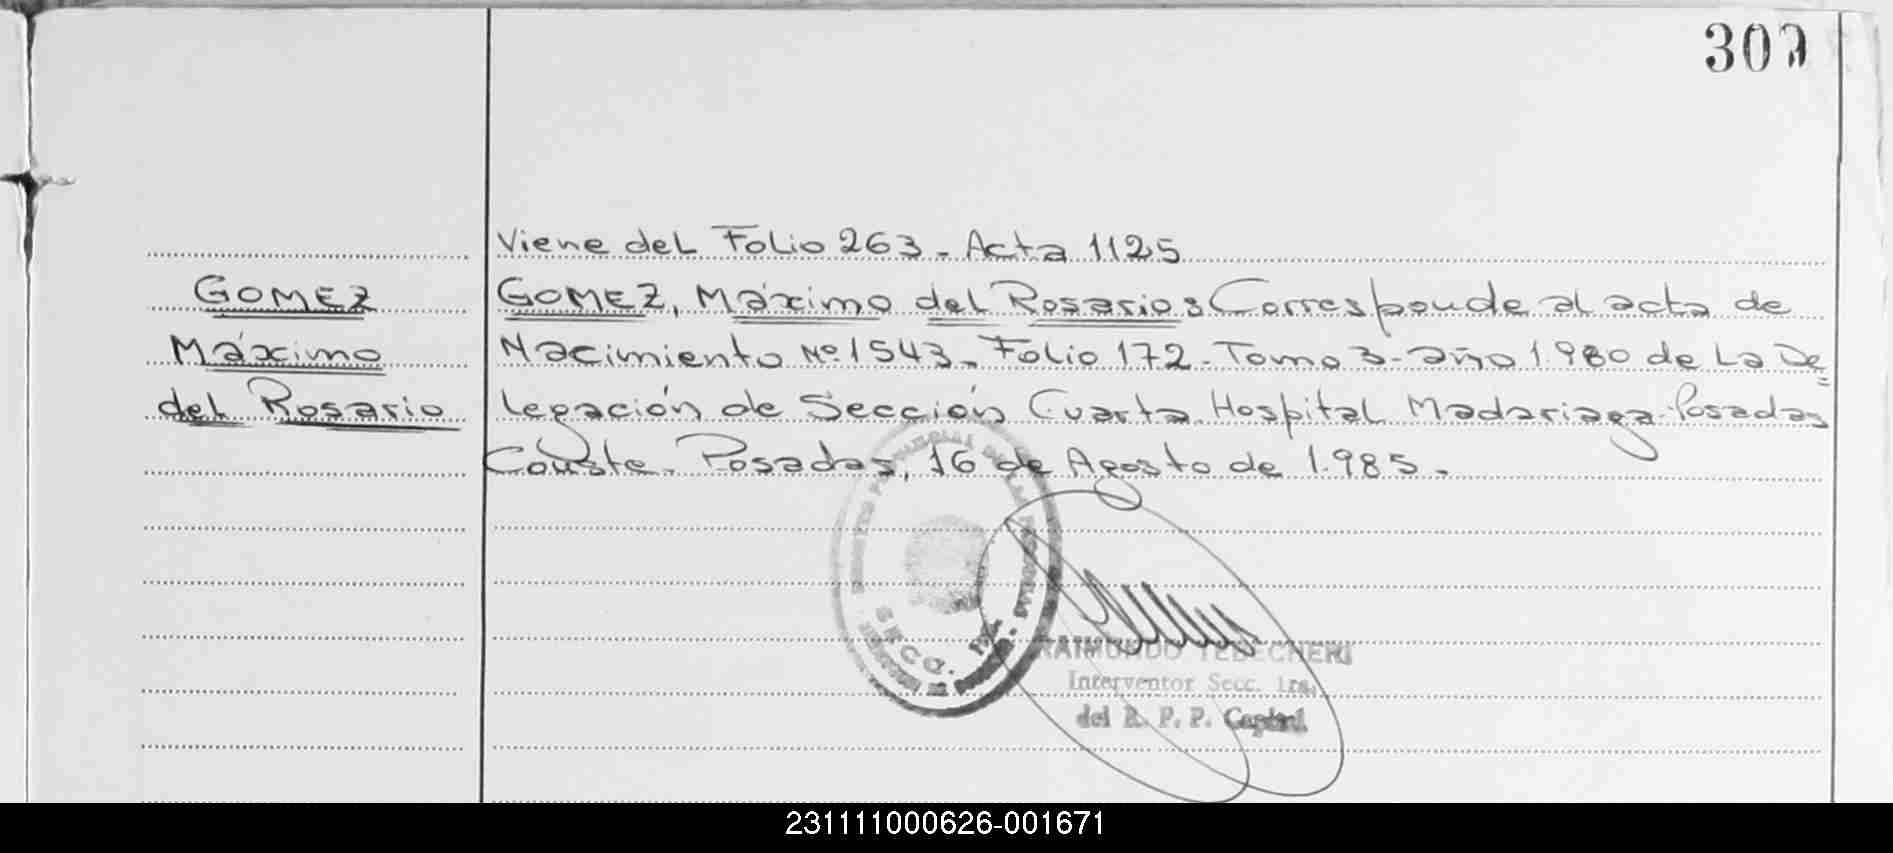 Viene del Folio 263 - Acta 1125
GOMEZ
Máximo
del Rosario
GOMEZ, Máximo del Rosario: Corresponde al acta de
Nacimiento Nº 1543 - Folio 172 - Tomo 3 - año 1.980 de La De
legación de Sección Cuarta Hospital Madariaga - Posadas
Conste - Posadas, 16 de Agosto de 1.985 -
SECC. 1ra.
RAIMUNDO TEBECHERI
Interventor Secc. 1ra.
del R. P. P. Capital
231111000626-001671